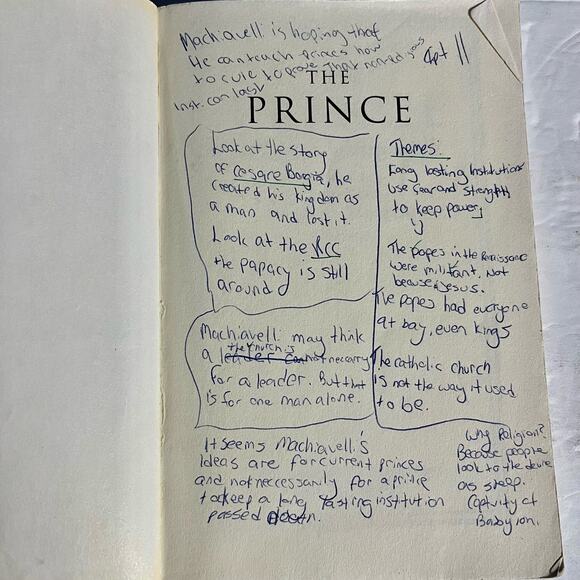 Machiavelli is hoping that
He can teach princes how
to rule to prove that
Inst. can last
Cpt 11
THE
PRINCE
Look at the story
of Cesare Borgia, he
created his kingdom as
a man and lost it.
Look at the RCC
the papacy is still
around
Themes:
Long lasting Institutions
use fear and strength
to keep power;
The popes in the Renaissance
were militant. Not
because Jesus.
The popes had everyone
at bay, even kings
The catholic church
is not the way it used
to be.
Machiavelli may think
the church is
a leader not neccarry
for a leader. But that
is for one man alone.
It seems Machiavelli's
ideas are for current princes
and not neccessarily for a prince
to keep a long lasting institution
passed down.
Why Religion?
Because people
look to the
as sheep.
Captivity of
Babylon.